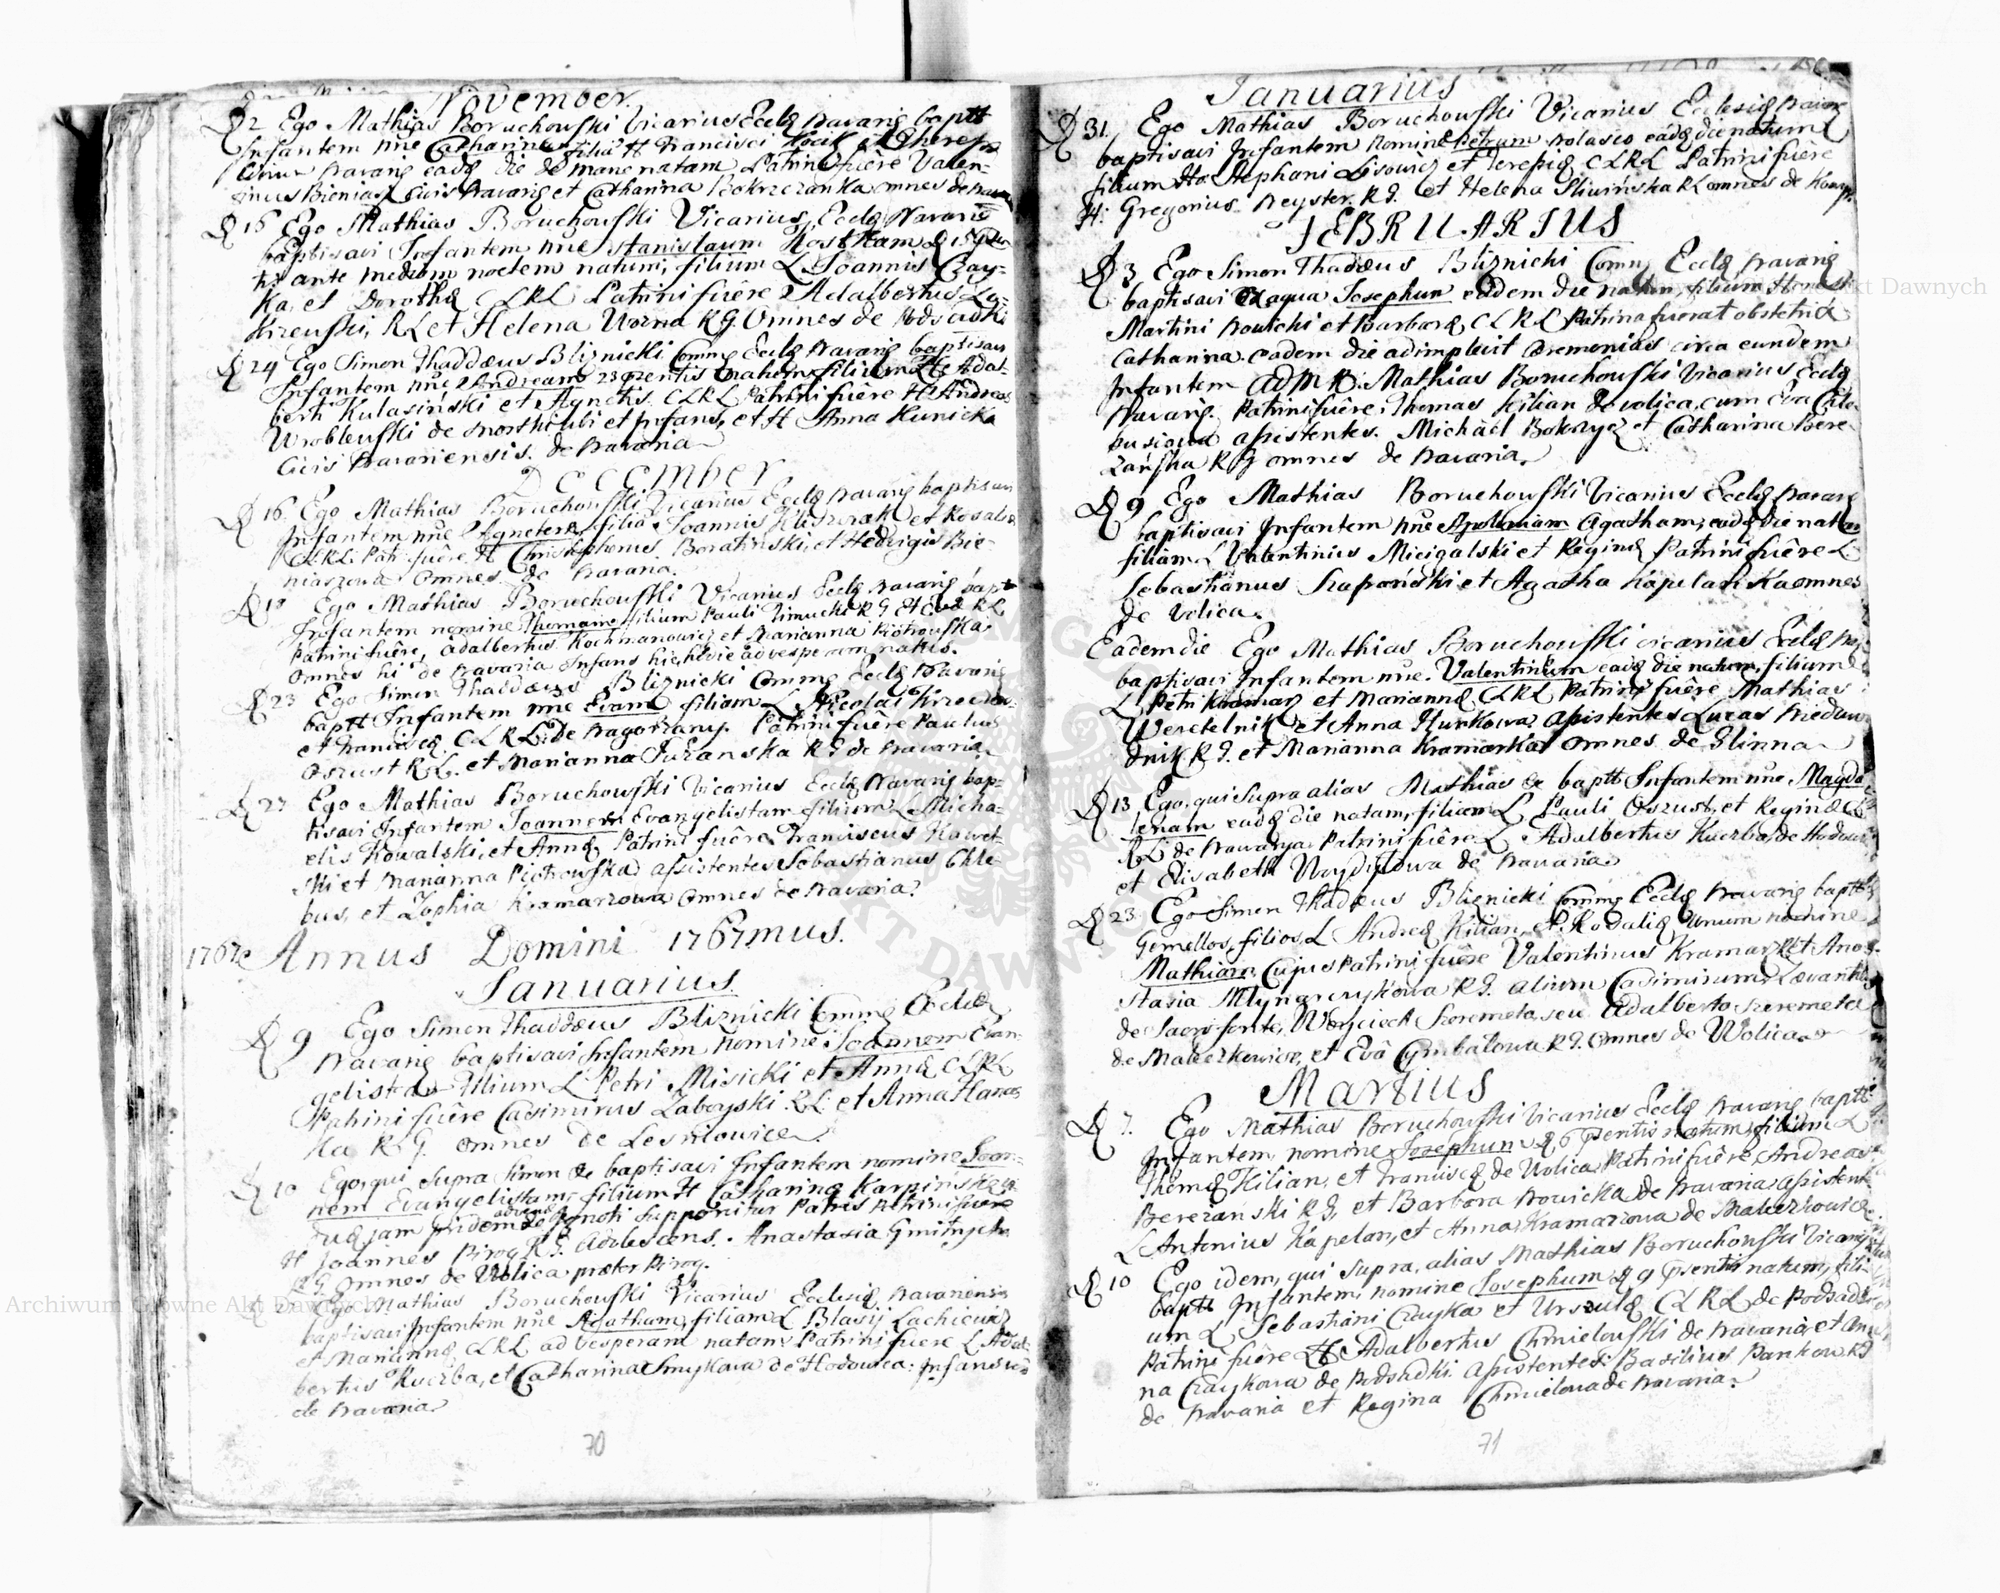 November.
D 2 Ego Mathias Boruchowski Vicarius Eccl Navarig bapti
Infantem nne Catharinam filia H Francisci Kocik et Theresę
Civium Navarię eadę die de mane natam Patrini fuere Valen-
tinus Bieniasz Civis Navarię et Catharina Bokrzezanka omnes de Navaria
D 16 Ego Mathias Boruchowski Vicarius, Ecclę Navarię
baptisavi Infantem nne Stanislaum Kostkam D 15
tis ante mediam noctem natum, filium L. Joannis Czay-
ka, et Dorothę CLRL Patrini fuere Adalbertus Za-
krzewski, RL et Helena Worna RG. Omnes de Podsadki
D 24 Ego Simon Thaddæus Bliznicki Comm Ecclę Navarię baptisavi
Infantem nne Andream 23 præsentis natum filium H Adal-
berti Kulasiński et Agnetis CLRL Patrini fuere H Andreas
Wroblewski de et Infans, et H Anna Kunicka
Civis Navariensis. de Navaria
December
D 16 Ego Mathias Boruchowski Vicarius Ecclę Navarię baptisavi
Infantem nne Agnetem, filia Joannis et Rosalię
CLRL. Patrini fuere H Christophorus Boratinski, et Hedvigis Bie-
niaszowa omnes de Navaria.
D 18 Ego Mathias Boruchowski Vicarius Ecclę Navarię bapt
Infantem nomine Thomam filium Pauli Simucki RG et Evę RL
Patrini fuere, Adalbertus Kochmanowicz et Marianna Piotrowska
omnes hi de Navaria Infans hic hodie ad vesperam natus.
D 23 Ego Simon Thaddæus Bliznicki Comms Ecclę Navarię
bapti Infantem nne Evam filiam L Nicolai
et Franciscę CLRL. de Nagorzany. Patrini fuere Paulus
Oszust RL. et Marianna Juzanska RG de Navaria
D 27 Ego Mathias Boruchowski Vicarius Ecclę Navarię bap-
tisavi Infantem Joannem Evangelistam filium L Micha-
elis Kowalski, et Annę, Patrini fuere Franciscus Kawec-
ski et Marianna Piotrowska assistentes Sebastianus Chle-
bus, et Zophia Kramarzowa omnes de Navaria.
1767 Annus Domini 1767mus.
Januarius
D 9 Ego Simon Thaddæus Bliznicki Comms Ecclę
Navarię baptisavi Infantem nomine Joannem Evan-
gelistam filium L Petri Misicki et Annę CLRL
Patrini fuere Casimirus Zaboyski RL. et Anna
ka RG. omnes de Lesniowice.
D 10 Ego, qui supra Simon &c baptisavi Infantem nomine Joan-
nem Evangelistam, filium H Catharinę Karpinska
jam pridem ignoti supponitur Patris Patrini fuere
H Joannes Pirog RG. Adolescens. Anastasia
RG. omnes de Wolica præter Pirog.
D 27 Ego Mathias Boruchowski Vicarius Ecclesię Navariensis
baptisavi Infantem nne Agatham, filiam L Blasij Lachiewicz
et Mariannę CLRL ad vesperam natam Patrini fuere L Adal-
bertus Kuczba, et Catharina Smykowa de Hodowica: Infans
de Navaria.
70
Januarius
D 31. Ego Mathias Boruchowski Vicarius Ecclesię Navarię
baptisavi Infantem nomine Petrum Nolasco eadę die natum
filium H Stephani Lisowicz et Teresię CLRL Patrini fuere
H: Gregorius Reyster RG. et Helena Sliwińska RL omnes de
FEBRUARIUS
D 3 Ego Simon Thaddæus Bliznicki Comms Ecclę Navarię
baptisavi ex aqua Josephum eadem die natum, filium
Martini Nowicki et Barbarę CLRL Patrina fuerat obstetrix
Catharina. eadem die adimplevit Ceremonias circa eundem
Infantem ADMR. Mathias Boruchowski Vicarius Ecclę
Navarię. Patrini fuere, Thomas Kilian de Wolica, cum Eva Chle-
busiowa assistentes. Michael Bokrzycz et Catharina Bere-
zańska RG omnes de Navaria.
D 9 Ego Mathias Boruchowski Vicarius Ecclę Navarię
baptisavi Infantem nne Apoloniam Agatham, eadę die natam
filiam L Valentinius Micigalski et Reginę Patrini fuere L
Sebastianus et Agatha Kapelanka omnes
de Wolica.
Eadem die Ego Mathias Boruchowski Vicarius Ecclę Na
baptisavi Infantem nne. Valentinum eadę die natum, filium
L Petri Kramarz et Mariannę CLRL Patrini fuere Mathias
Weretelnik et Anna Hurkowa assistentes Lucas
dnik RG. et Marianna Kramarka omnes de Glinna
D 13 Ego, qui supra alias Mathias &c bapti Infantem nne. Magda-
lenam eadę die natam, filiam L Pauli Oszust, et Reginę CL
RL de Navarya. Patrini fuere L Adalbertus Kuczba, de
et Elisabeth Woydiłowa de Navaria
D 23. Ego Simon Thadæus Bliznicki Comms Ecclę Navarię bapti
Gemellos, filios L Andreę Kilian, et Rosalię, Unum nomine
Mathiam, Cujus Patrini fuere Valentinus Kramarz et Ana-
stasia Mlynarczykowa RG. alium Casimirum Levantibus
de Sacro fonte, Woyciech Szeremeta, seu Adalberto Szeremeta
de Malezkowice, et Evâ Cymbalowa RG. omnes de Wolica
Martius
D 7. Ego Mathias Boruchowski Vicarius Ecclę Navarię bapti
Infantem, nomine Josephum D 6 præsentis natum, filium L
Thomę Kilian, et Franciscę de Wolica, Patrini fuere, Andreas
Berezanski RG, et Barbara Nowicka de Navaria assistent
L Antonius Kapelan, et Anna Kramarzowa de Malezkowice
D 10 Ego idem, qui supra, alias Mathias Boruchowski Vicarius
bapti Infantem, nomine Josephum D 9 præsentis natum, fili-
um L Sebastiani Czayka et Ursulę CLRL de Podsadki
Patrini fuere H Adalbertus Chmielowski de Navaria, et An-
na Czaykowa de Podsadki. assistentes: Basilius Pankow RG
de Navaria et Regina Chmielowa de Navaria.
71
Archiwum Główne Akt Dawnych